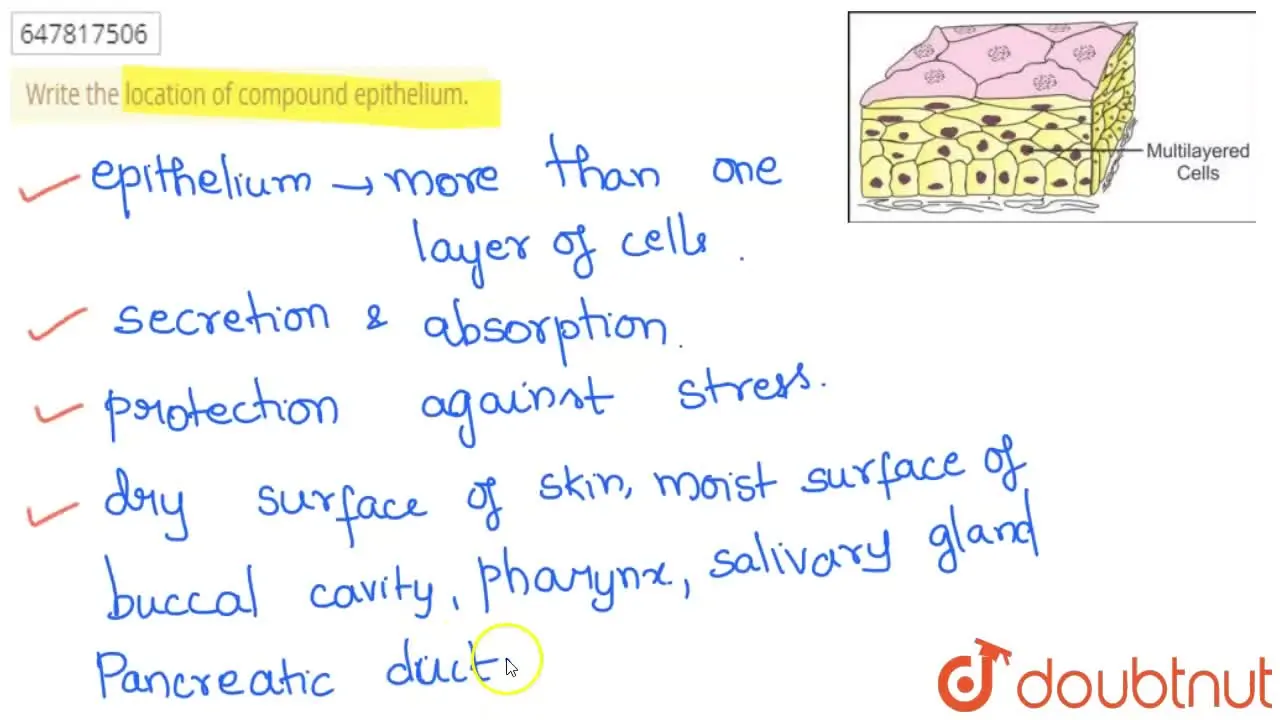 647817506
Write the location of compound epithelium.
epithelium → more than one
layer of cells.
secretion & absorption.
protection against stress.
dry surface of skin, moist surface of
buccal cavity, pharynx, salivary gland
Pancreatic duct
Multilayered
Cells
doubtnut